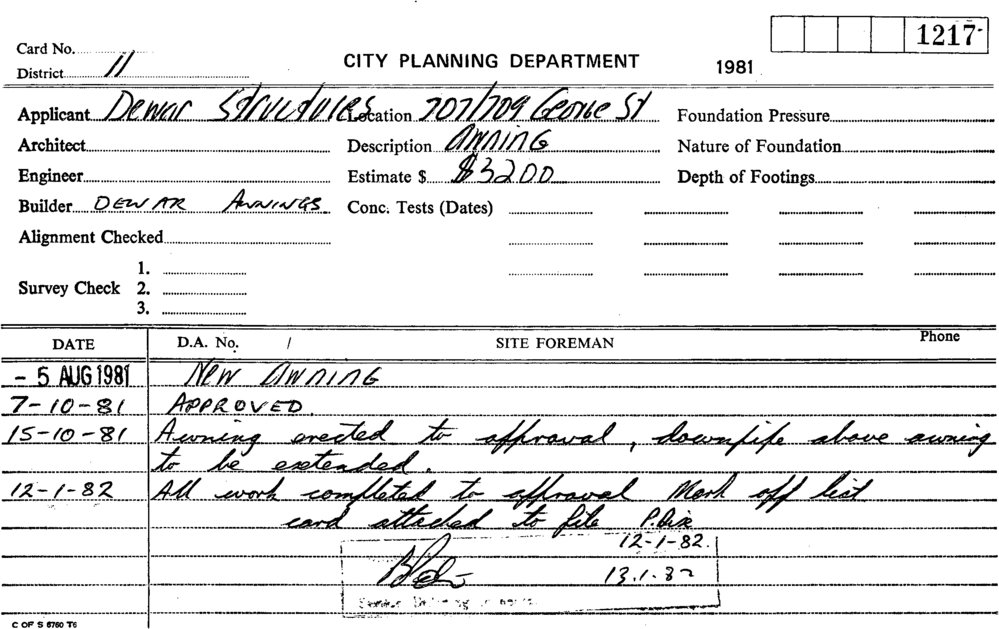 1217
Card No.
District 11
CITY PLANNING DEPARTMENT
1981
Applicant Dewar Structures Location 707/709 George St Foundation Pressure
Architect Description Awning Nature of Foundation
Engineer Estimate $ $3200 Depth of Footings
Builder DEWAR AWNINGS Conc. Tests (Dates)
Alignment Checked
1.
Survey Check 2.
3.
DATE D.A. No. / SITE FOREMAN Phone
- 5 AUG 1981 New Awning
7-10-81 APPROVED.
15-10-81 Awning erected to approval, downpipe above awning
to be extended.
12-1-82 All work completed to approval Mark off list
card attached to file P.Dix
12-1-82.
13.1.82
Senior Building
C OF S 6760 T6